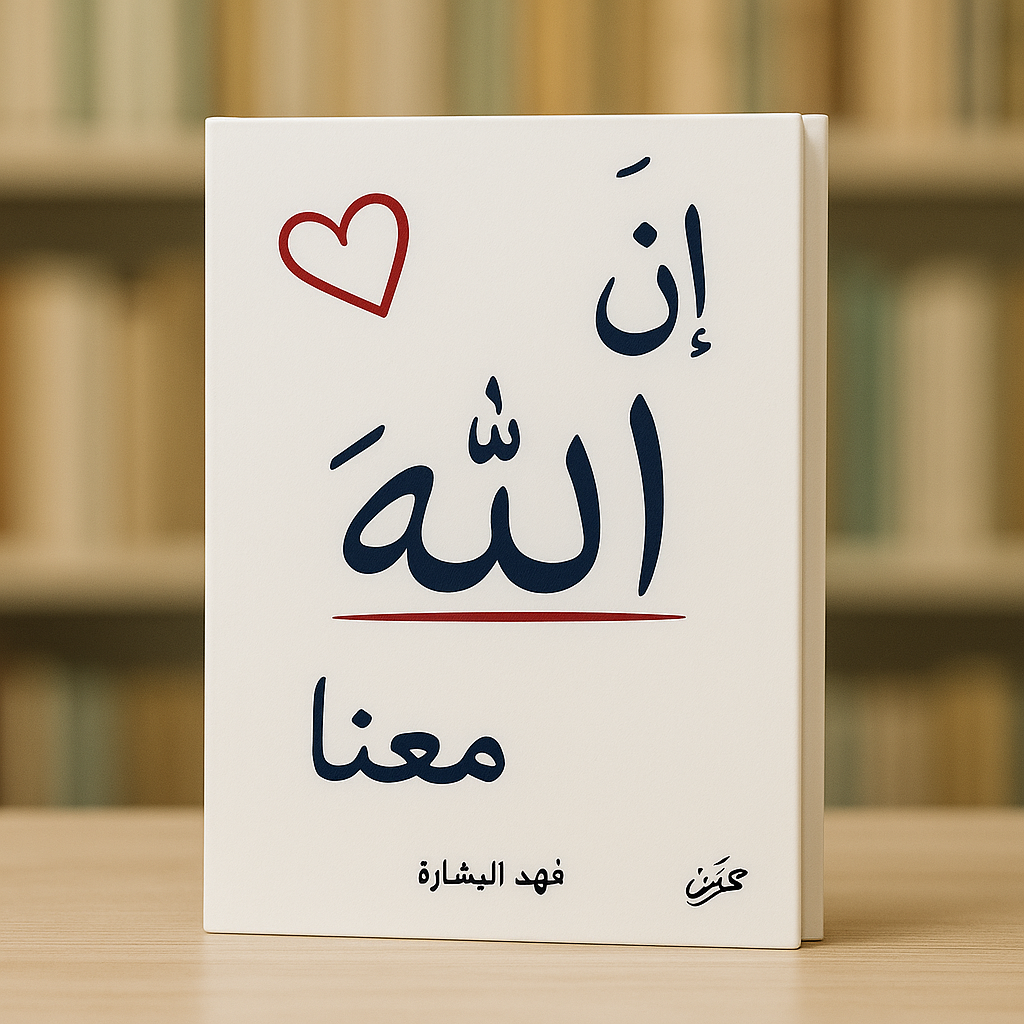 إنَ
اللّهَ
معنا
فهد اليشارة